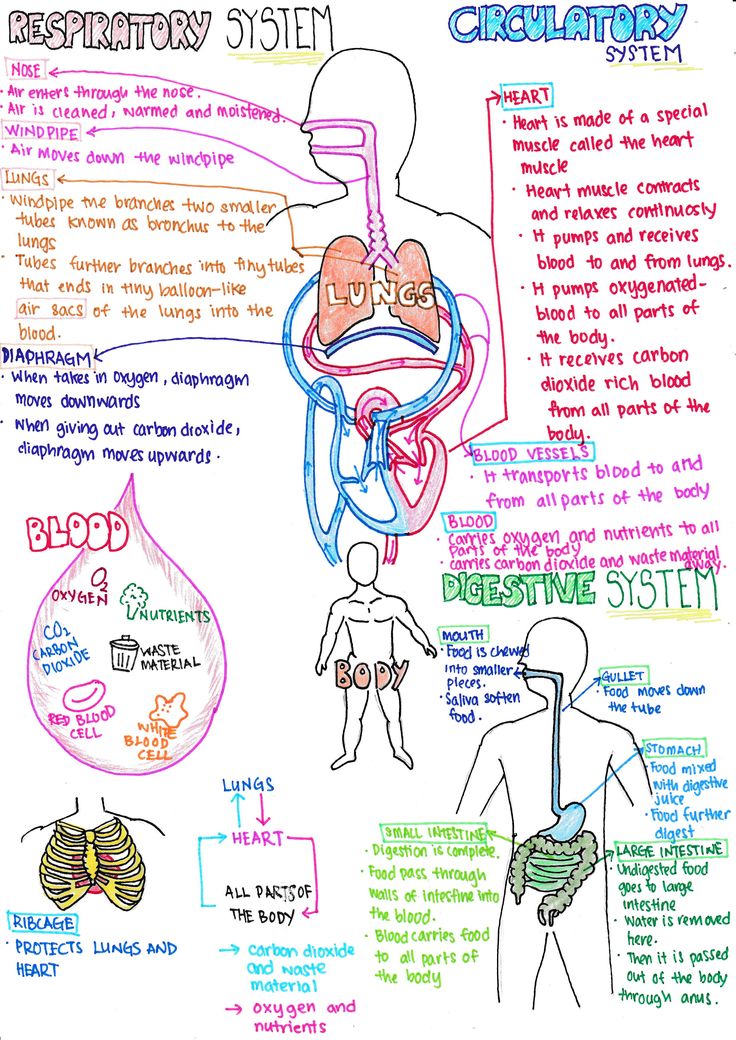 RESPIRATORY SYSTEM
NOSE
· Air enters through the nose.
· Air is cleaned, warmed and moistened.
WINDPIPE
· Air moves down the windpipe
LUNGS
· Windpipe the branches two smaller
tubes known as bronchus to the
lungs
· Tubes further branches into tiny tubes
that ends in tiny balloon-like
air sacs of the lungs into the
blood.
DIAPHRAGM
· When takes in oxygen, diaphragm
moves downwards
· When giving out carbon dioxide,
diaphragm moves upwards.
LUNGS
CIRCULATORY
SYSTEM
HEART
· Heart is made of a special
muscle called the heart
muscle
· Heart muscle contracts
and relaxes continuosly
· It pumps and receives
blood to and from lungs.
· It pumps oxygenated-
blood to all parts of
the body.
· It receives carbon
dioxide rich blood
from all parts of the
body.
BLOOD VESSELS
· It transports blood to and
from all parts of the body
BLOOD
· carries oxygen and nutrients to all
parts of the body
· carries carbon dioxide and waste material
away.
BLOOD
O2
OXYGEN
NUTRIENTS
CO2
CARBON
DIOXIDE
WASTE
MATERIAL
RED BLOOD
CELL
WHITE
BLOOD
CELL
BODY
DIGESTIVE SYSTEM
MOUTH
· Food is chewed
into smaller
pieces.
· Saliva soften
food.
GULLET
· Food moves down
the tube
STOMACH
· Food mixed
with digestive
juice
· Food further
digest
SMALL INTESTINE
· Digestion is complete.
· Food pass through
walls of intestine into
the blood.
· Blood carries food
to all parts of the
body
LARGE INTESTINE
· Undigested food
goes to large
intestine
· Water is removed
here.
· Then it is passed
out of the body
through anus.
RIBCAGE
· PROTECTS LUNGS AND
HEART
LUNGS
HEART
ALL PARTS OF
THE BODY
→ carbon dioxide
and waste
material
→ oxygen and
nutrients